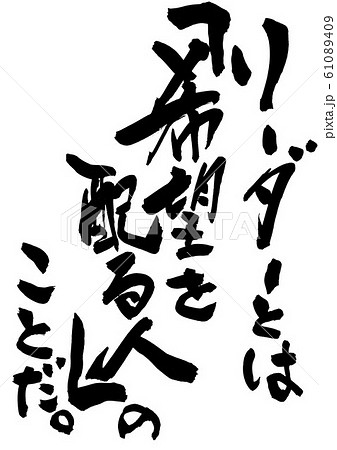 リーダーとは
「希望を
配る人」の
ことだ。
PIXTA
pixta.jp - 61089409